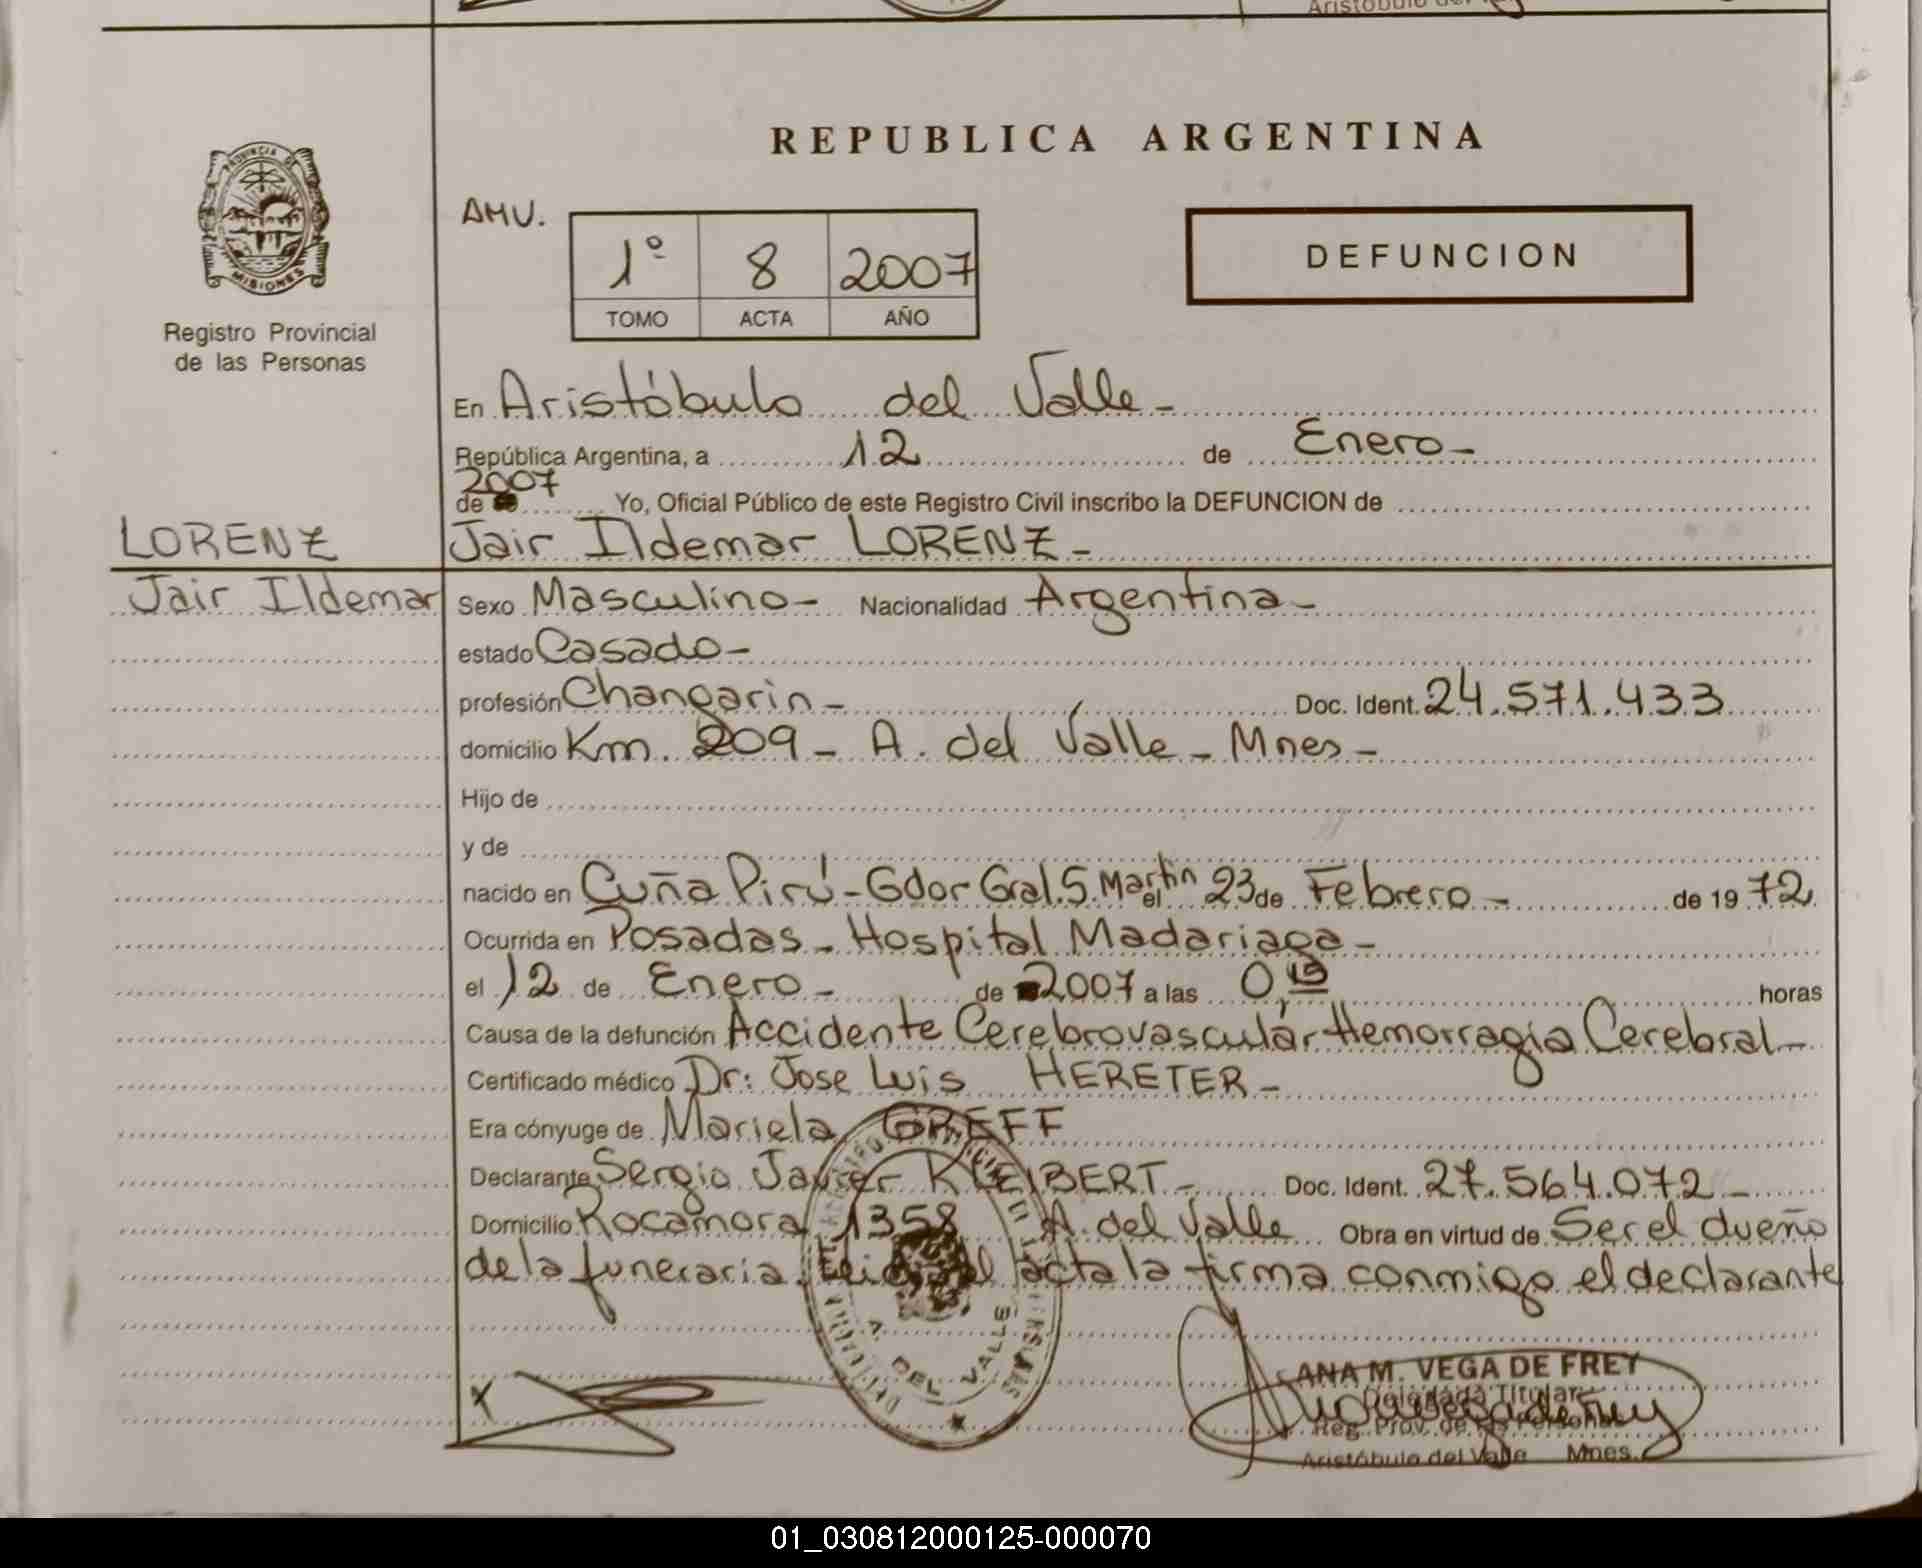 Aristóbulo del
PROVINCIA DE
MISIONES
Registro Provincial
de las Personas
REPUBLICA ARGENTINA
AMU.
1º 8 2007
TOMO ACTA AÑO
DEFUNCION
En Aristóbulo del Valle -
República Argentina, a 12 de Enero -
2007
de Yo, Oficial Público de este Registro Civil inscribo la DEFUNCION de
LORENZ Jair Ildemar LORENZ -
Jair Ildemar Sexo Masculino - Nacionalidad Argentina -
estado Casado -
profesión Changarin - Doc. Ident. 24.571.433
domicilio Km. 209 - A. del Valle - Mnes -
Hijo de
y de
nacido en Cuña Pirú - Gdor Gral. S. Martin el 23 de Febrero - de 1972
Ocurrida en Posadas - Hospital Madariaga -
el 12 de Enero - de 2007 a las 0,15 horas
Causa de la defunción Accidente Cerebrovascular Hemorragia Cerebral -
Certificado médico Dr: Jose Luis HERETER -
Era cónyuge de Mariela GREFF
Declarante Sergio Javier KLEIBERT - Doc. Ident. 27.564.072 -
Domicilio Rocamora 1358 A. del Valle Obra en virtud de Ser el dueño
de la funeraria. Leida el acta la firma conmigo el declarante
A. DEL VALLE
X
ANA M. VEGA DE FREY
Delegada Titular
Reg. Prov. de las Personas
Aristóbulo del Valle Mnes.
01_030812000125-000070